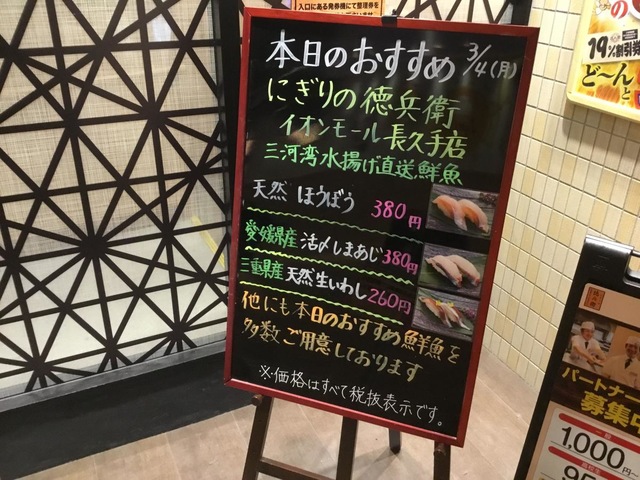 入口にある発券機にて整理券を
本日のおすすめ 3/4(月)
にぎりの徳兵衛
イオンモール長久手店
三河湾水揚げ直送鮮魚
天然 ほうぼう 380円
愛媛県産 活〆しまあじ 380円
三重県産 天然生いわし 260円
他にも本日のおすすめ鮮魚を
多数ご用意しております
※価格はすべて税抜表示です。
の
19%割引券
ど〜んと
パートナー
募集中
1,000円